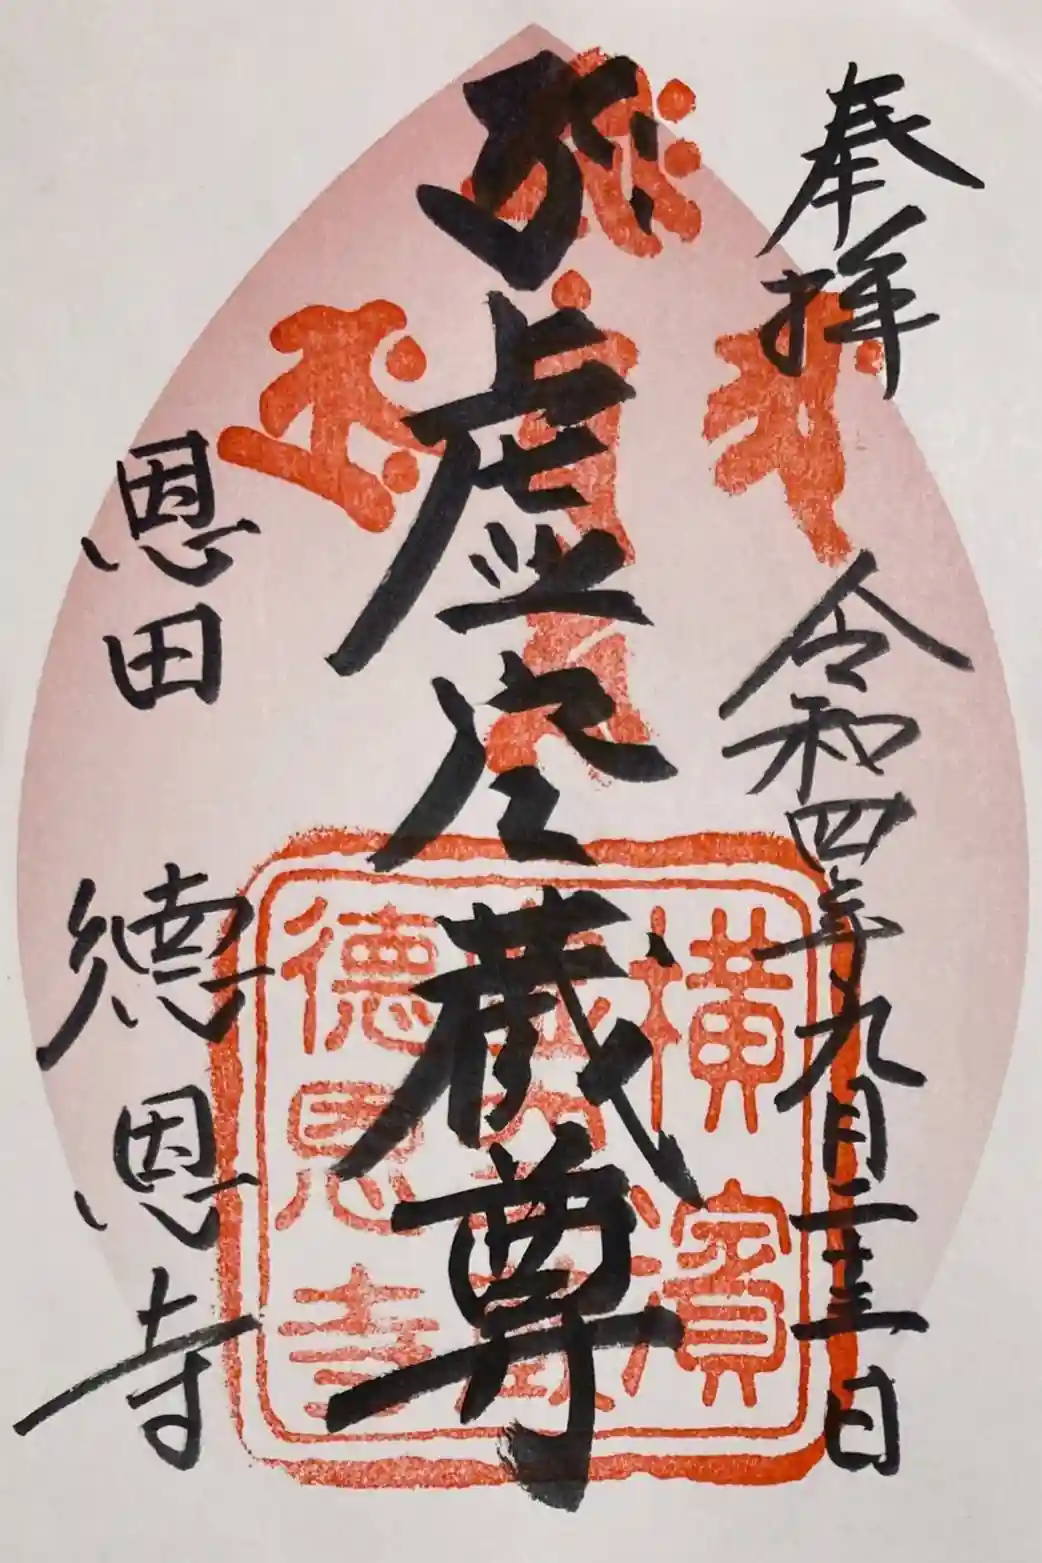 奉拝
令和四年九月二十三日
虚空蔵尊
恩田 徳恩寺
横濱
徳恩寺